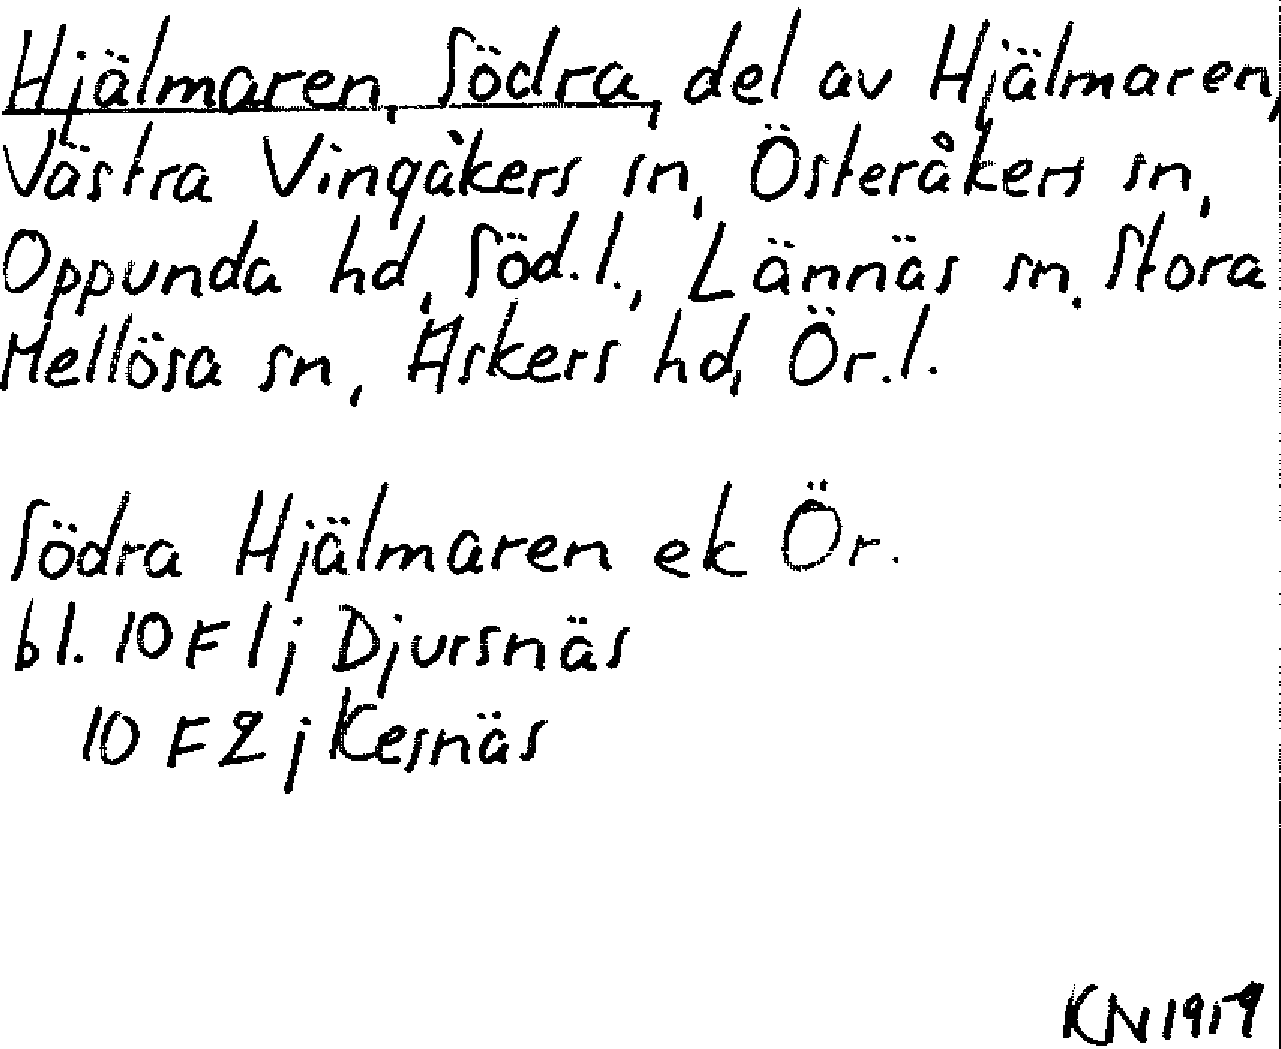 Hjälmaren, Södra, del av Hjälmaren,
Västra Vingåkers sn, Österåkers sn,
Oppunda hd, Söd.l., Lännäs sn. Stora
Mellösa sn, Askers hd, Ör.l.
Södra Hjälmaren ek Ör.
bl. 10 F 1 j Djursnäs
10 F 2 j Kesnäs